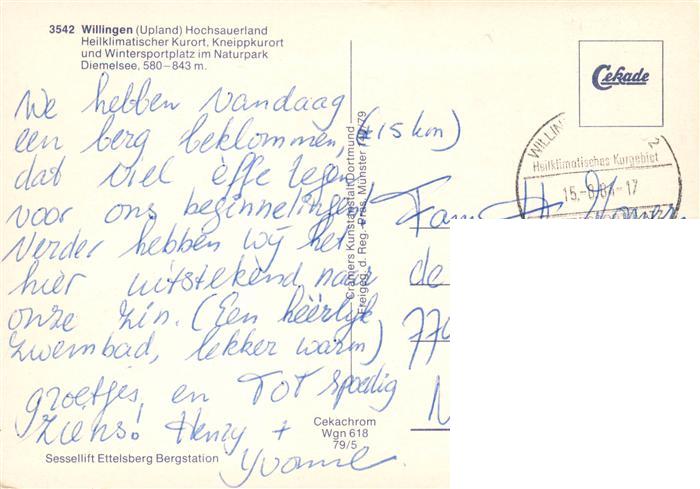 3542 Willingen (Upland) Hochsauerland
Heilklimatischer Kurort, Kneippkurort
und Wintersportplatz im Naturpark
Diemelsee, 580–843 m.
Cekade
We hebben vandaag
een berg beklommen, (± 15 km)
dat viel effe tegen
voor ons beginnelingen!
Verder hebben wij het
hier uitstekend naar
onze zin. (Een héérlijk
zwembad, lekker warm)
groetjes, en tot spoedig
ziens! Henry +
Yvonne
Cramers Kunstanstalt Dortmund
Freigeg. d. Reg. Präs. Münster
Heilklimatisches Kurgebiet
15.-8.84-17
Fam.
de
Cekachrom
Wgn 618
79/5
Sessellift Ettelsberg Bergstation